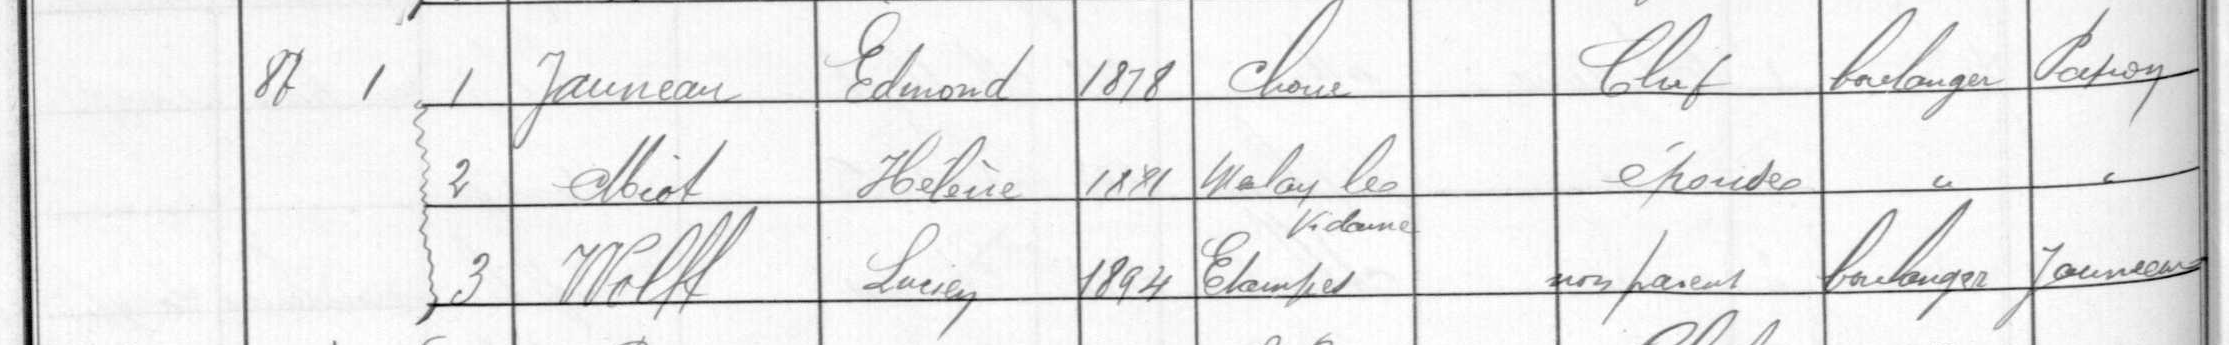 1 1 Jauneau Edmond 1878 Choue Chef boulanger Patron
2 Miot Hélène 1881 épouse " "
Vidame
3 Wolff Lucien 1894 Etampes non parent boulanger Jauneau